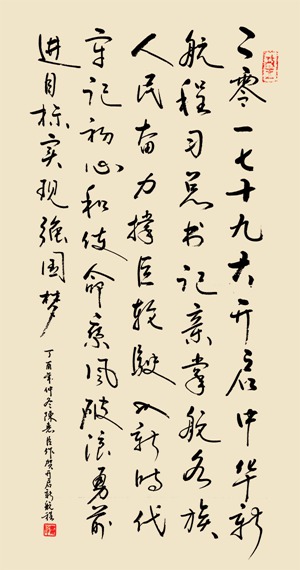 二零一七十九大开启中华新
航程习总书记亲掌航各族
人民奋力撑巨轮驶入新时代
牢记初心和使命乘风破浪勇前
进目标实现强国梦
丁酉年仲冬陈
作贺开启新航程